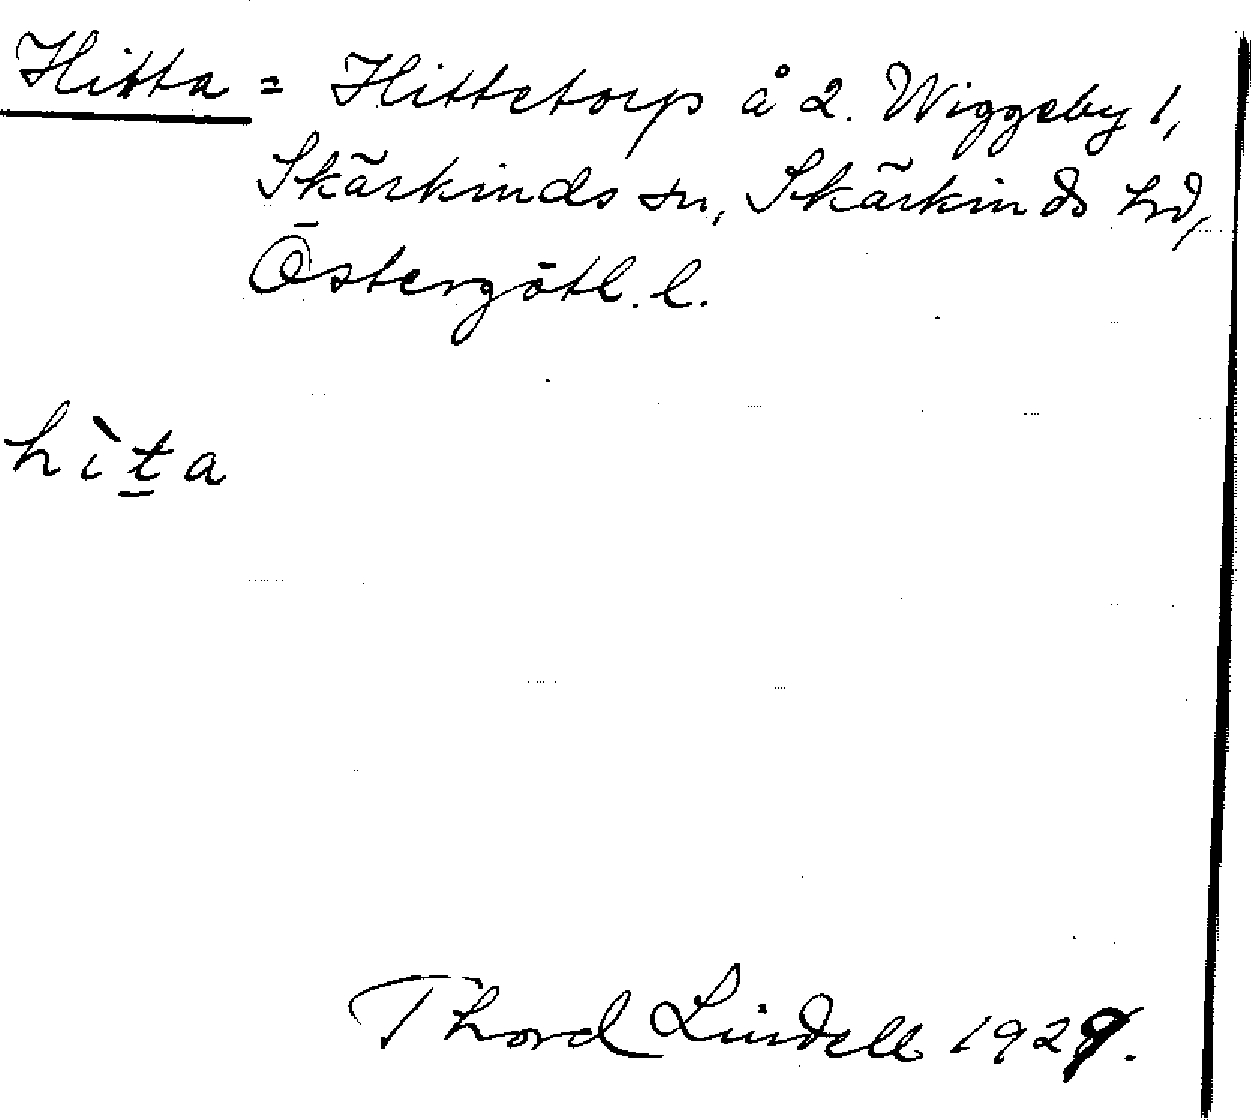 Hitta = Hittetorp å 2. Wiggeby 1,
Skärkinds sn, Skärkinds hd,
Östergötl. l.
hìt̠a
Thord Lindell 1929.